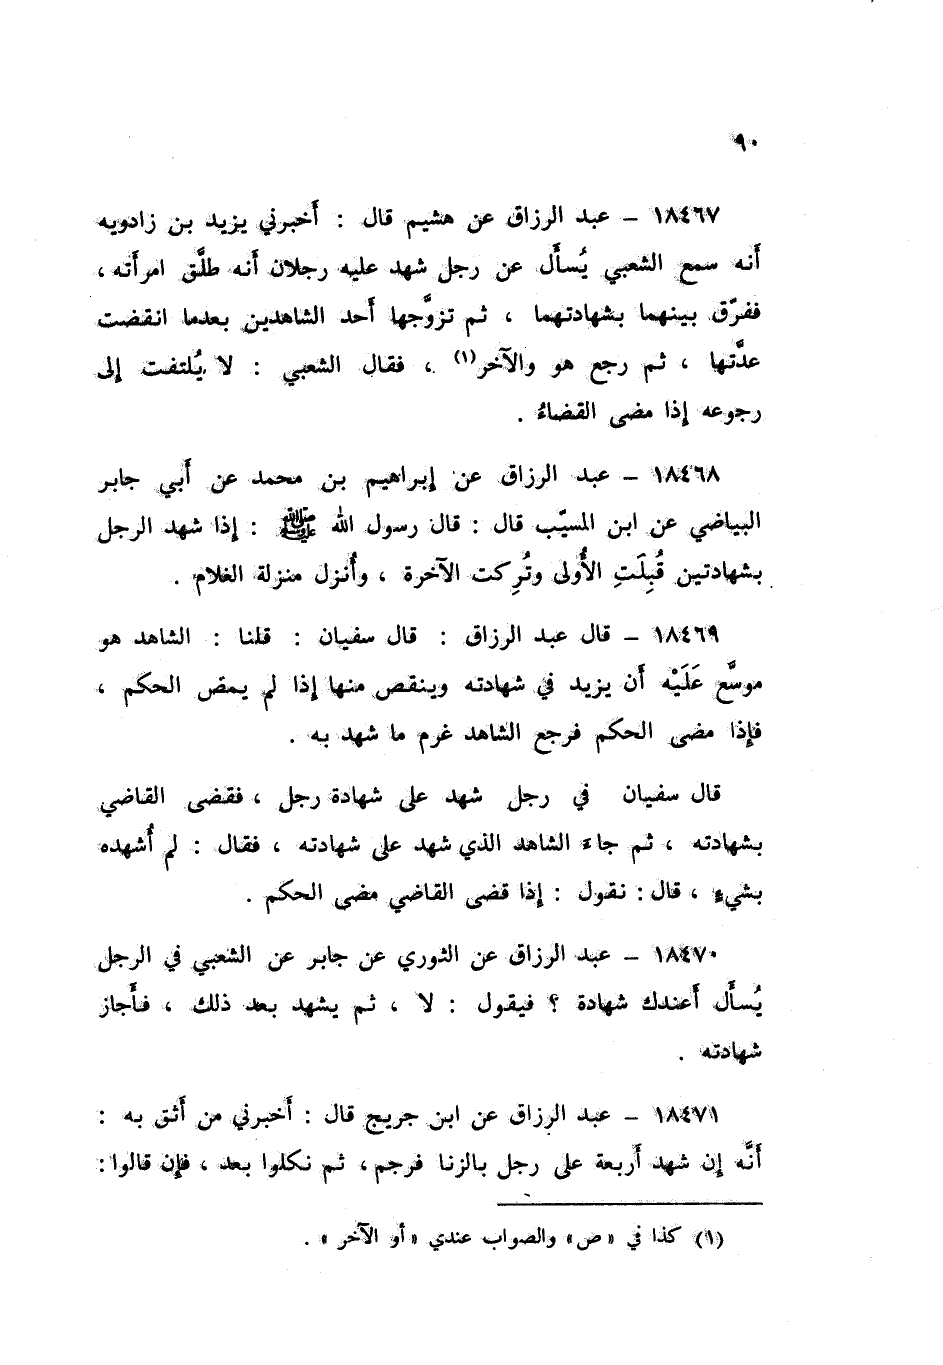 ٩٠
١٨٤٦٧ – عبد الرزاق عن هشيم قال : أَخبرني يزيد بن زادويه
أَنه سمع الشعبي يُسأَل عن رجل شهد عليه رجلان أَنه طلَّق امرأَته ،
ففرّق بينهما بشهادتهما ، ثم تزوَّجها أَحد الشاهدين بعدما انقضت
عدَّتها ، ثم رجع هو والآخر(١) ، فقال الشعبي : لا يُلتفت إلى
رجوعه إذا مضى القضاءُ .
١٨٤٦٨ – عبد الرزاق عن إبراهيم بن محمد عن أَبي جابر
البياضي عن ابن المسيّب قال : قال رسول الله ﷺ : إذا شهد الرجل
بشهادتين قُبِلَتِ الأُولى وتُرِكت الآخرة ، وأُنزل منزلة الغلام .
١٨٤٦٩ – قال عبد الرزاق : قال سفيان : قلنا : الشاهد هو
موسَّع عَلَيْه أَن يزيد في شهادته وينقص منها إذا لم يمض الحكم ،
فإذا مضى الحكم فرجع الشاهد غرم ما شهد به .
قال سفيان في رجل شهد على شهادة رجل ، فقضى القاضي
بشهادته ، ثم جاءَ الشاهد الذي شهد على شهادته ، فقال : لم أُشهده
بشيءٍ ، قال : نقول : إذا قضى القاضي مضى الحكم .
١٨٤٧٠ – عبد الرزاق عن الثوري عن جابر عن الشعبي في الرجل
يُسأَل أَعندك شهادة ؟ فيقول : لا ، ثم يشهد بعد ذلك ، فأَجاز
شهادته .
١٨٤٧١ – عبد الرزاق عن ابن جريج قال : أَخبرني من أَثق به :
أَنَّه إن شهد أَربعة على رجل بالزنا فرجم ، ثم نكلوا بعد ، فإن قالوا :
(١) كذا في «ص» والصواب عندي «أو الآخر» .